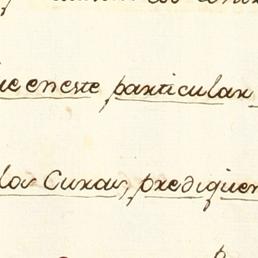 ue en este particular
los Curas, prediquen